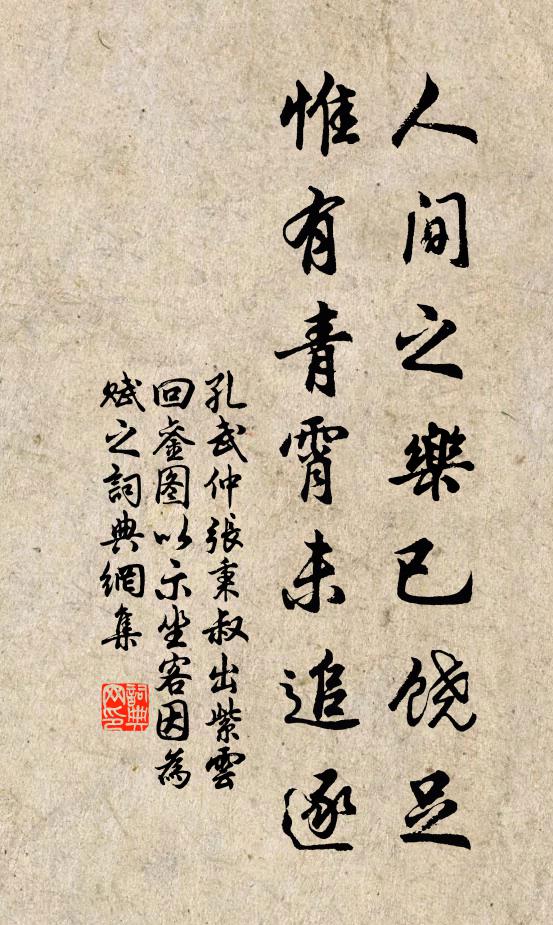 人间之樂已饶足
惟有青霄未追逐
孔武仲張秉叔出紫雲
回鑾图以示坐客因為
赋之詞典網集
詞典网印